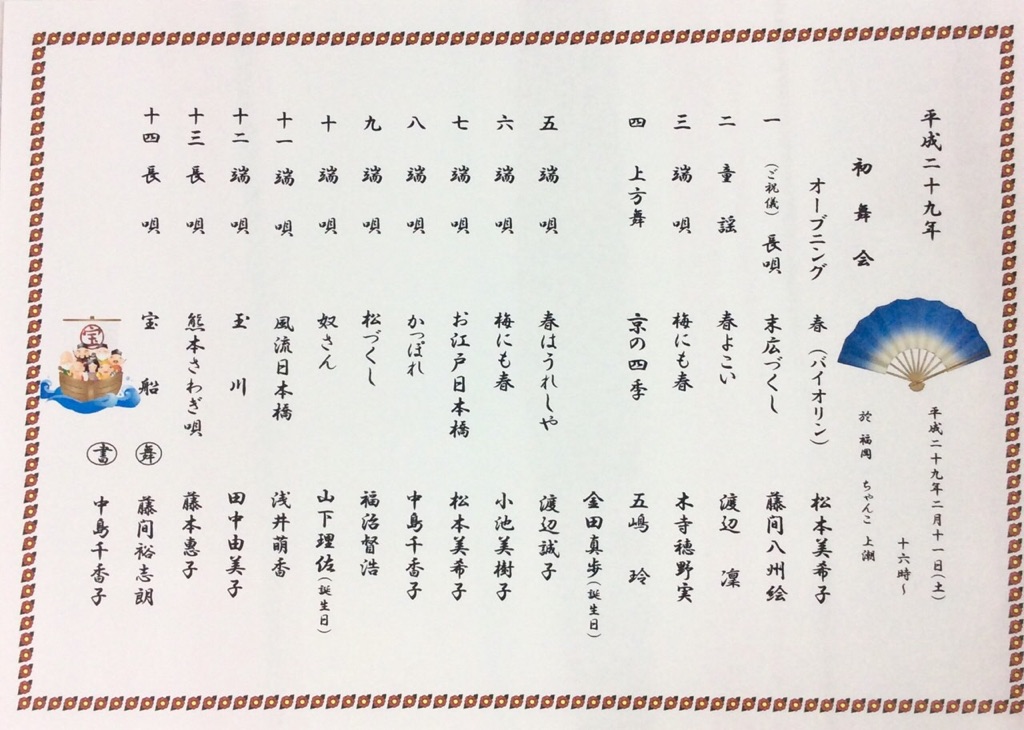 平成二十九年
初舞会
平成二十九年二月十一日(土)
十六時~
於 福岡 ちゃんこ 上潮
オープニング 春(バイオリン) 松本美希子
一 (ご祝儀) 長唄 末広づくし 藤間八州絵
二 童謡 春よこい 渡辺 凜
三 端唄 梅にも春 木寺穂野実
四 上方舞 京の四季 五嶋 玲
金田真歩(誕生日)
五 端唄 春はうれしや 渡辺誠子
六 端唄 梅にも春 小池美樹子
七 端唄 お江戸日本橋 松本美希子
八 端唄 かっぽれ 中島千香子
九 端唄 松づくし 福治督浩
十 端唄 奴さん 山下理佐(誕生日)
十一 端唄 風流日本橋 浅井萌香
十二 端唄 玉川 田中由美子
十三 長唄 熊本さわぎ唄 藤本惠子
十四 長唄 宝船 舞 藤間裕志朗
書 中島千香子
宝